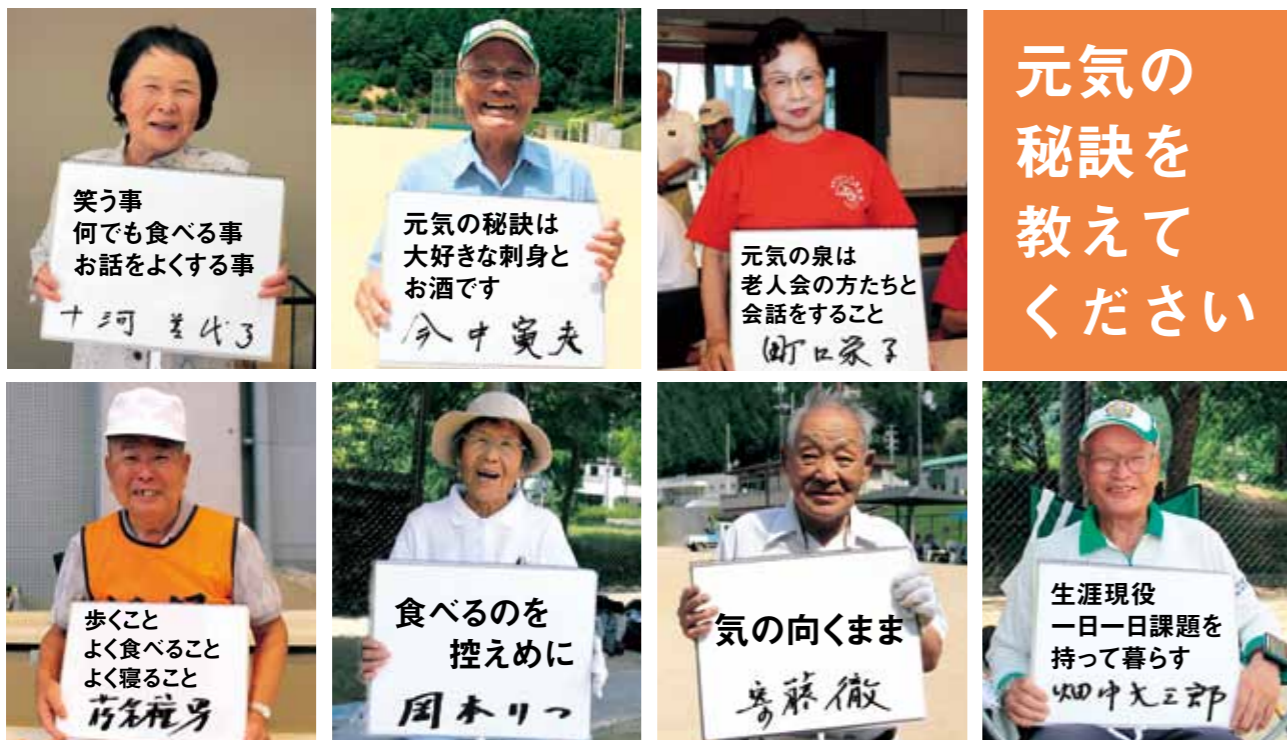 笑う事
何でも食べる事
お話をよくする事
十河 美代子
元気の秘訣は
大好きな刺身と
お酒です
今中寅夫
元気の泉は
老人会の方たちと
会話をすること
町口栄子
元気の
秘訣を
教えて
ください
歩くこと
よく食べること
よく寝ること
食べるのを
控えめに
岡本りつ
気の向くまま
安藤徹
生涯現役
一日一日課題を
持って暮らす
畑中大三郎